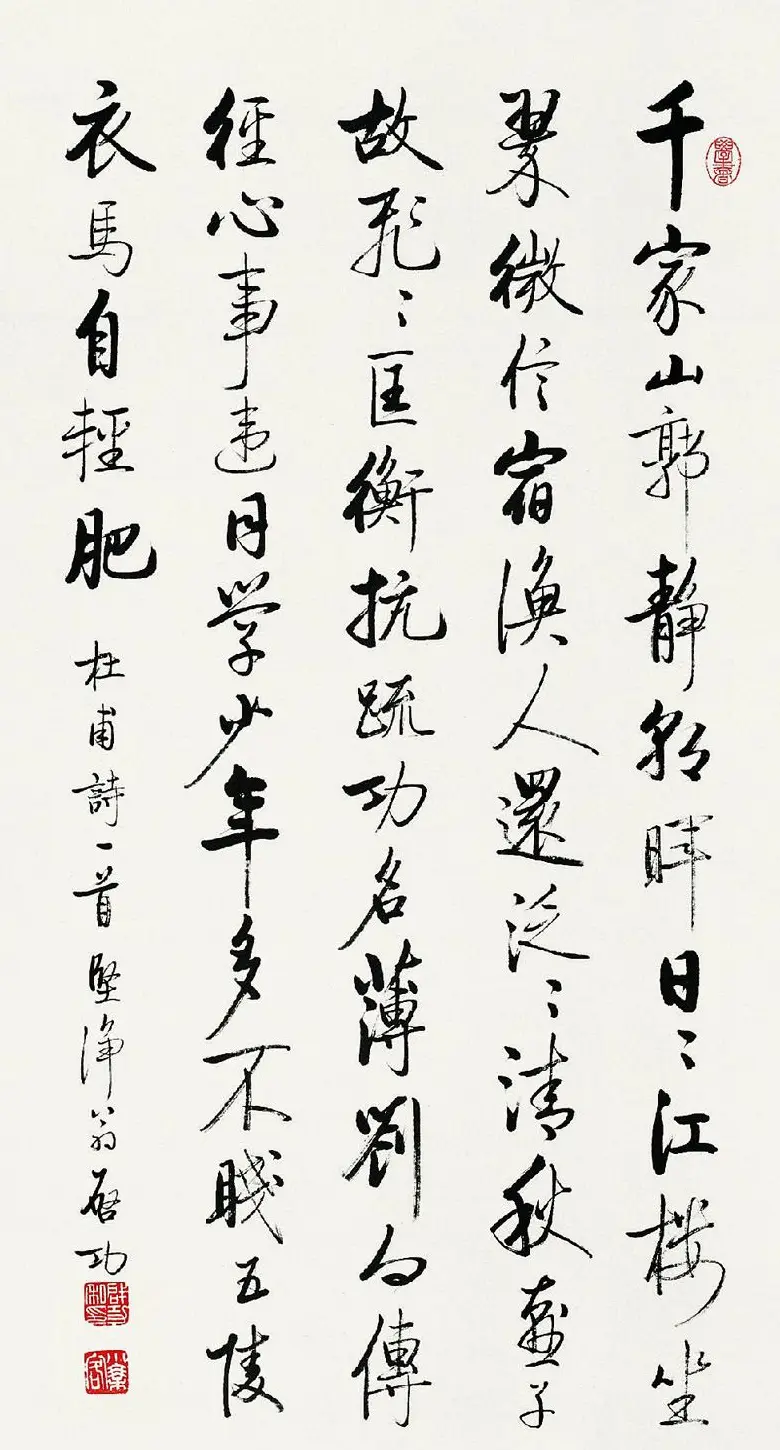 千家山郭靜朝暉日〻江樓坐
翠微信宿漁人還泛〻清秋燕子
故飛〻匡衡抗疏功名薄劉向傳
經心事違同学少年多不賤五陵
衣馬自輕肥 杜甫詩一首 堅淨翁啓功